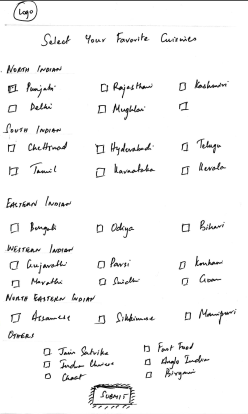 Logo
Select Your Favorite Cuisines
North Indian
Punjabi Rajasthani Kashmiri
Delhi Mughlai
South Indian
Chettinad Hyderabadi Telugu
Tamil Karnataka Kerala
Eastern Indian
Bengali Odiya Bihari
Western Indian
Gujarathi Parsi Konkani
Marathi Sindhi Goan
North Eastern Indian
Assamese Sikkimese Manipuri
Others
Jain Satvika Fast Food
Indian Chinese Anglo Indian
Chaat Biryani
Submit